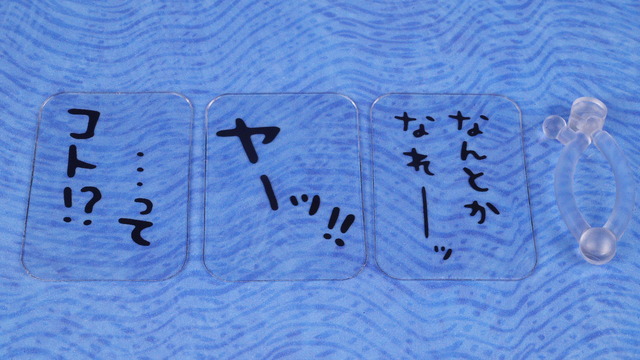 ……って
コト!?
ヤーッッ!!
なんとか
なれーッ